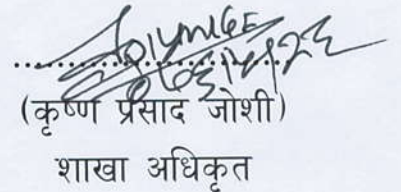 (कृष्ण प्रसाद जोशी)
शाखा अधिकृत